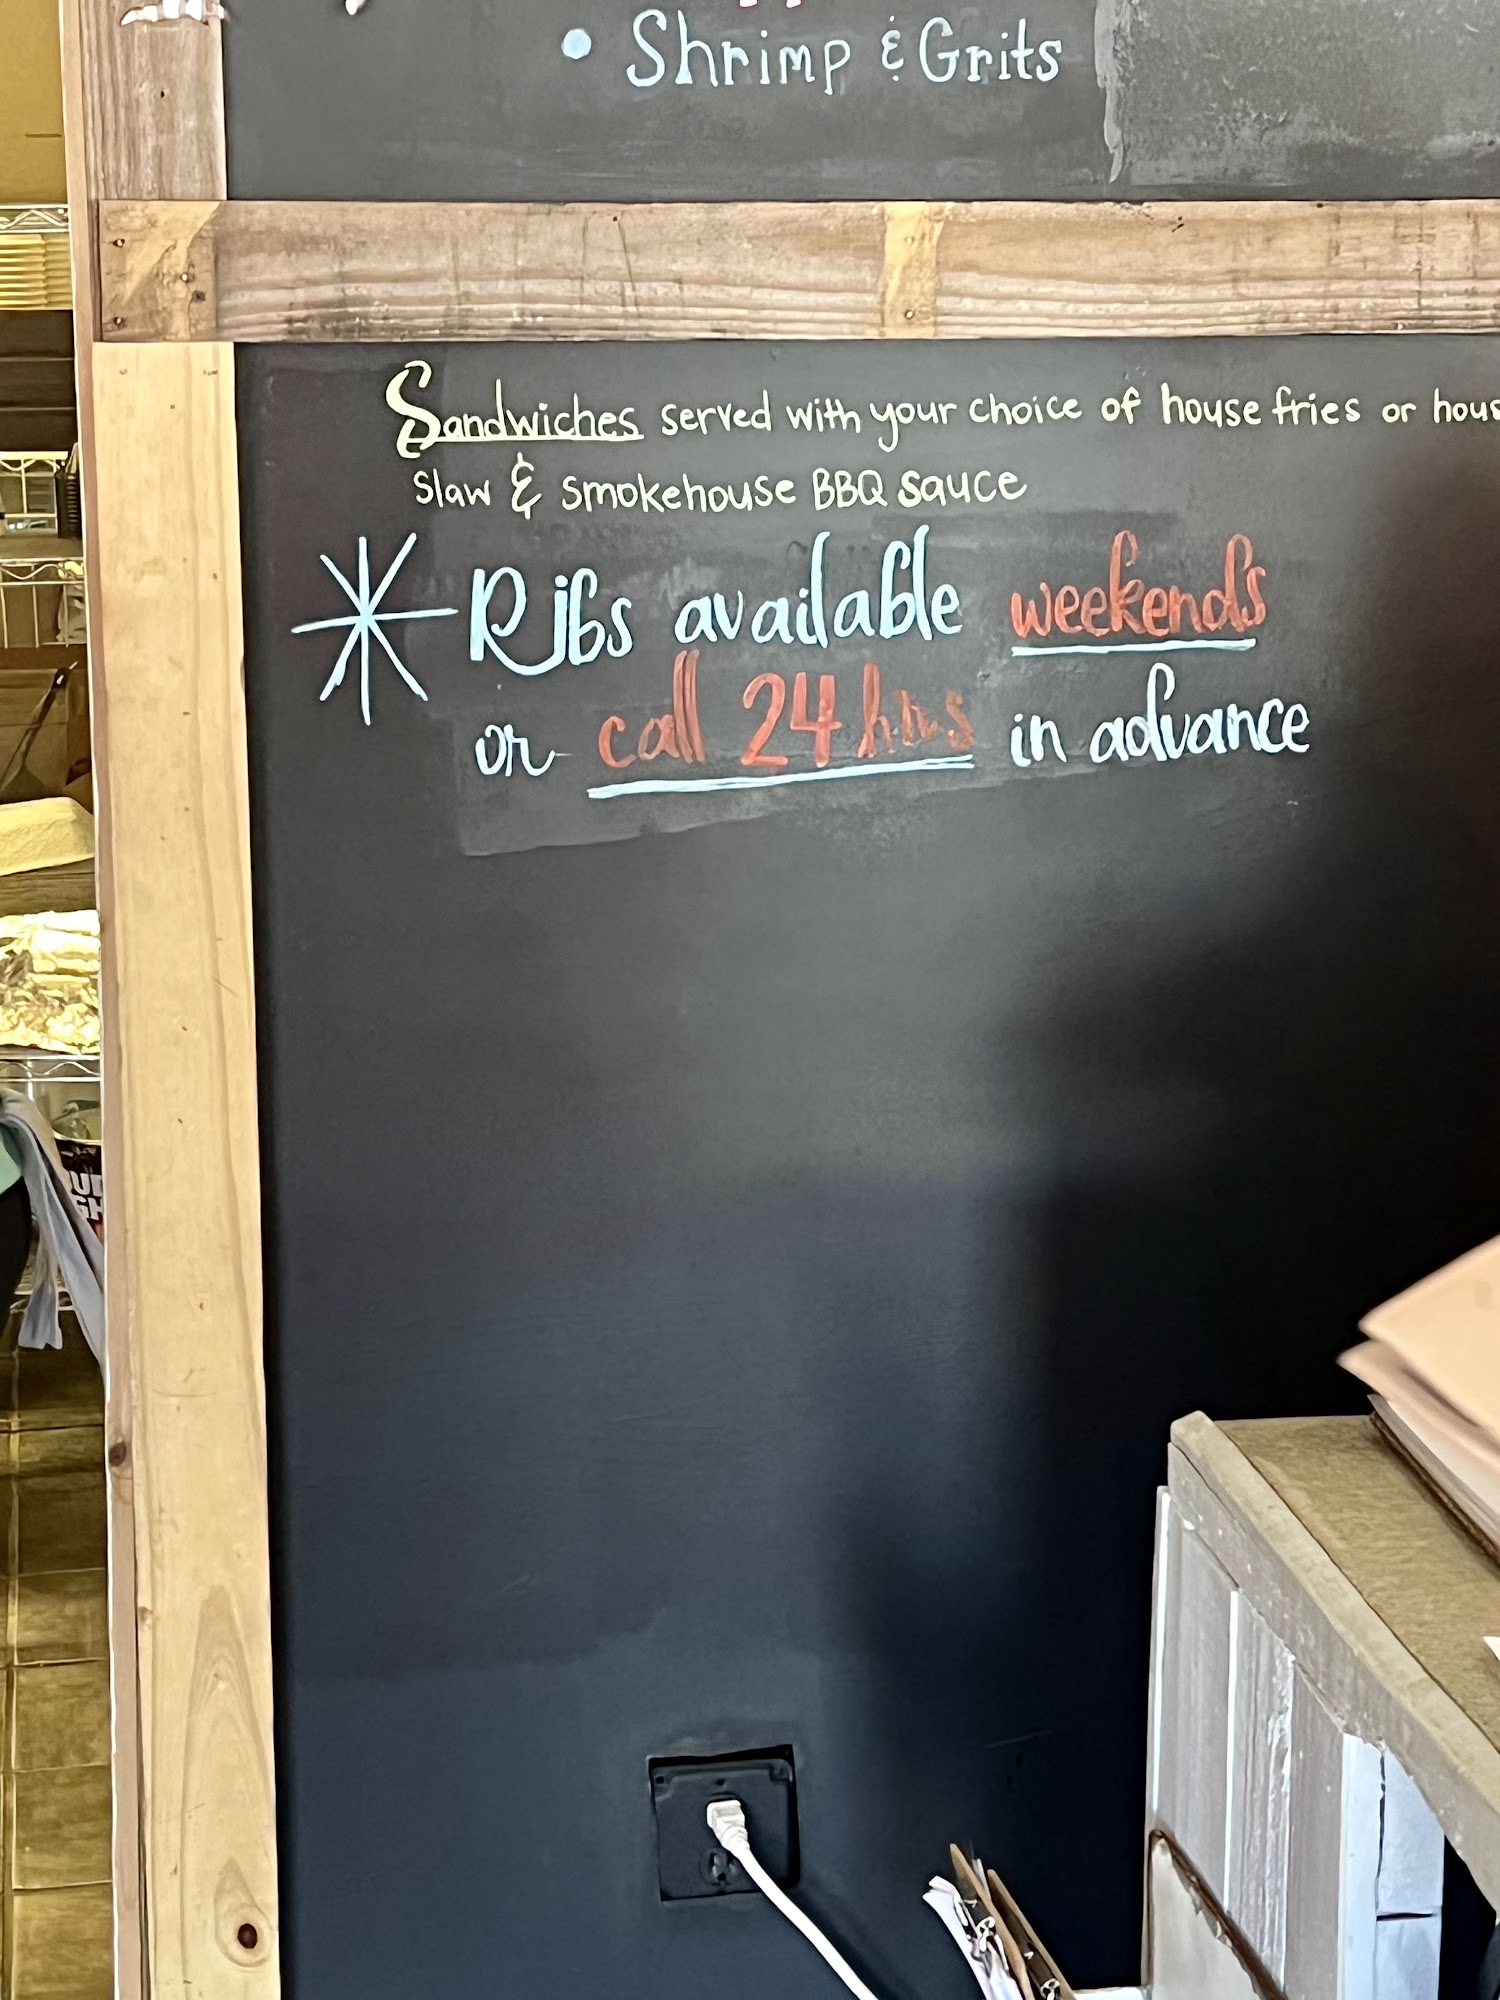 • Shrimp & Grits
Sandwiches served with your choice of house fries or
slaw & smokehouse BBQ sauce
Ribs available weekends
or call 24 hrs in advance